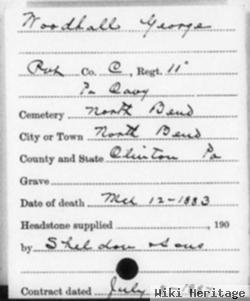 Woodhall George
Pvt Co. C, Regt. 11"
Pa Cavy
Cemetery North Bend
City or Town North Bend
County and State Clinton Pa
Grave
Date of death Mch 12-1883
Headstone supplied , 190
by Sheldon & Sons
Contract dated July
Wiki Heritage